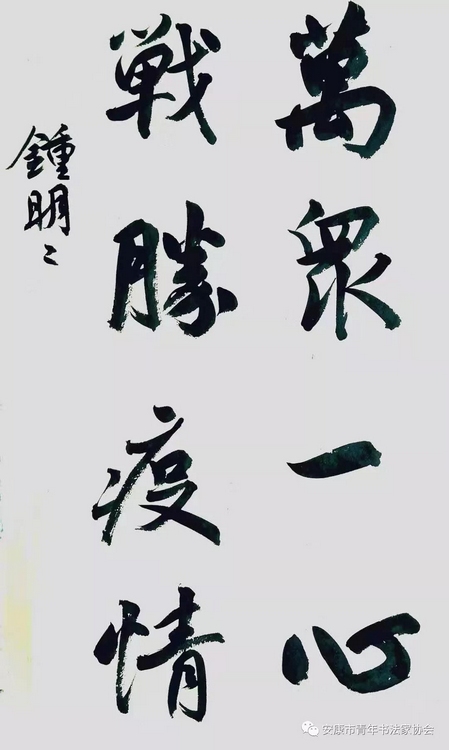 萬衆一心
戰勝疫情
鍾明明
安康市青年书法家协会